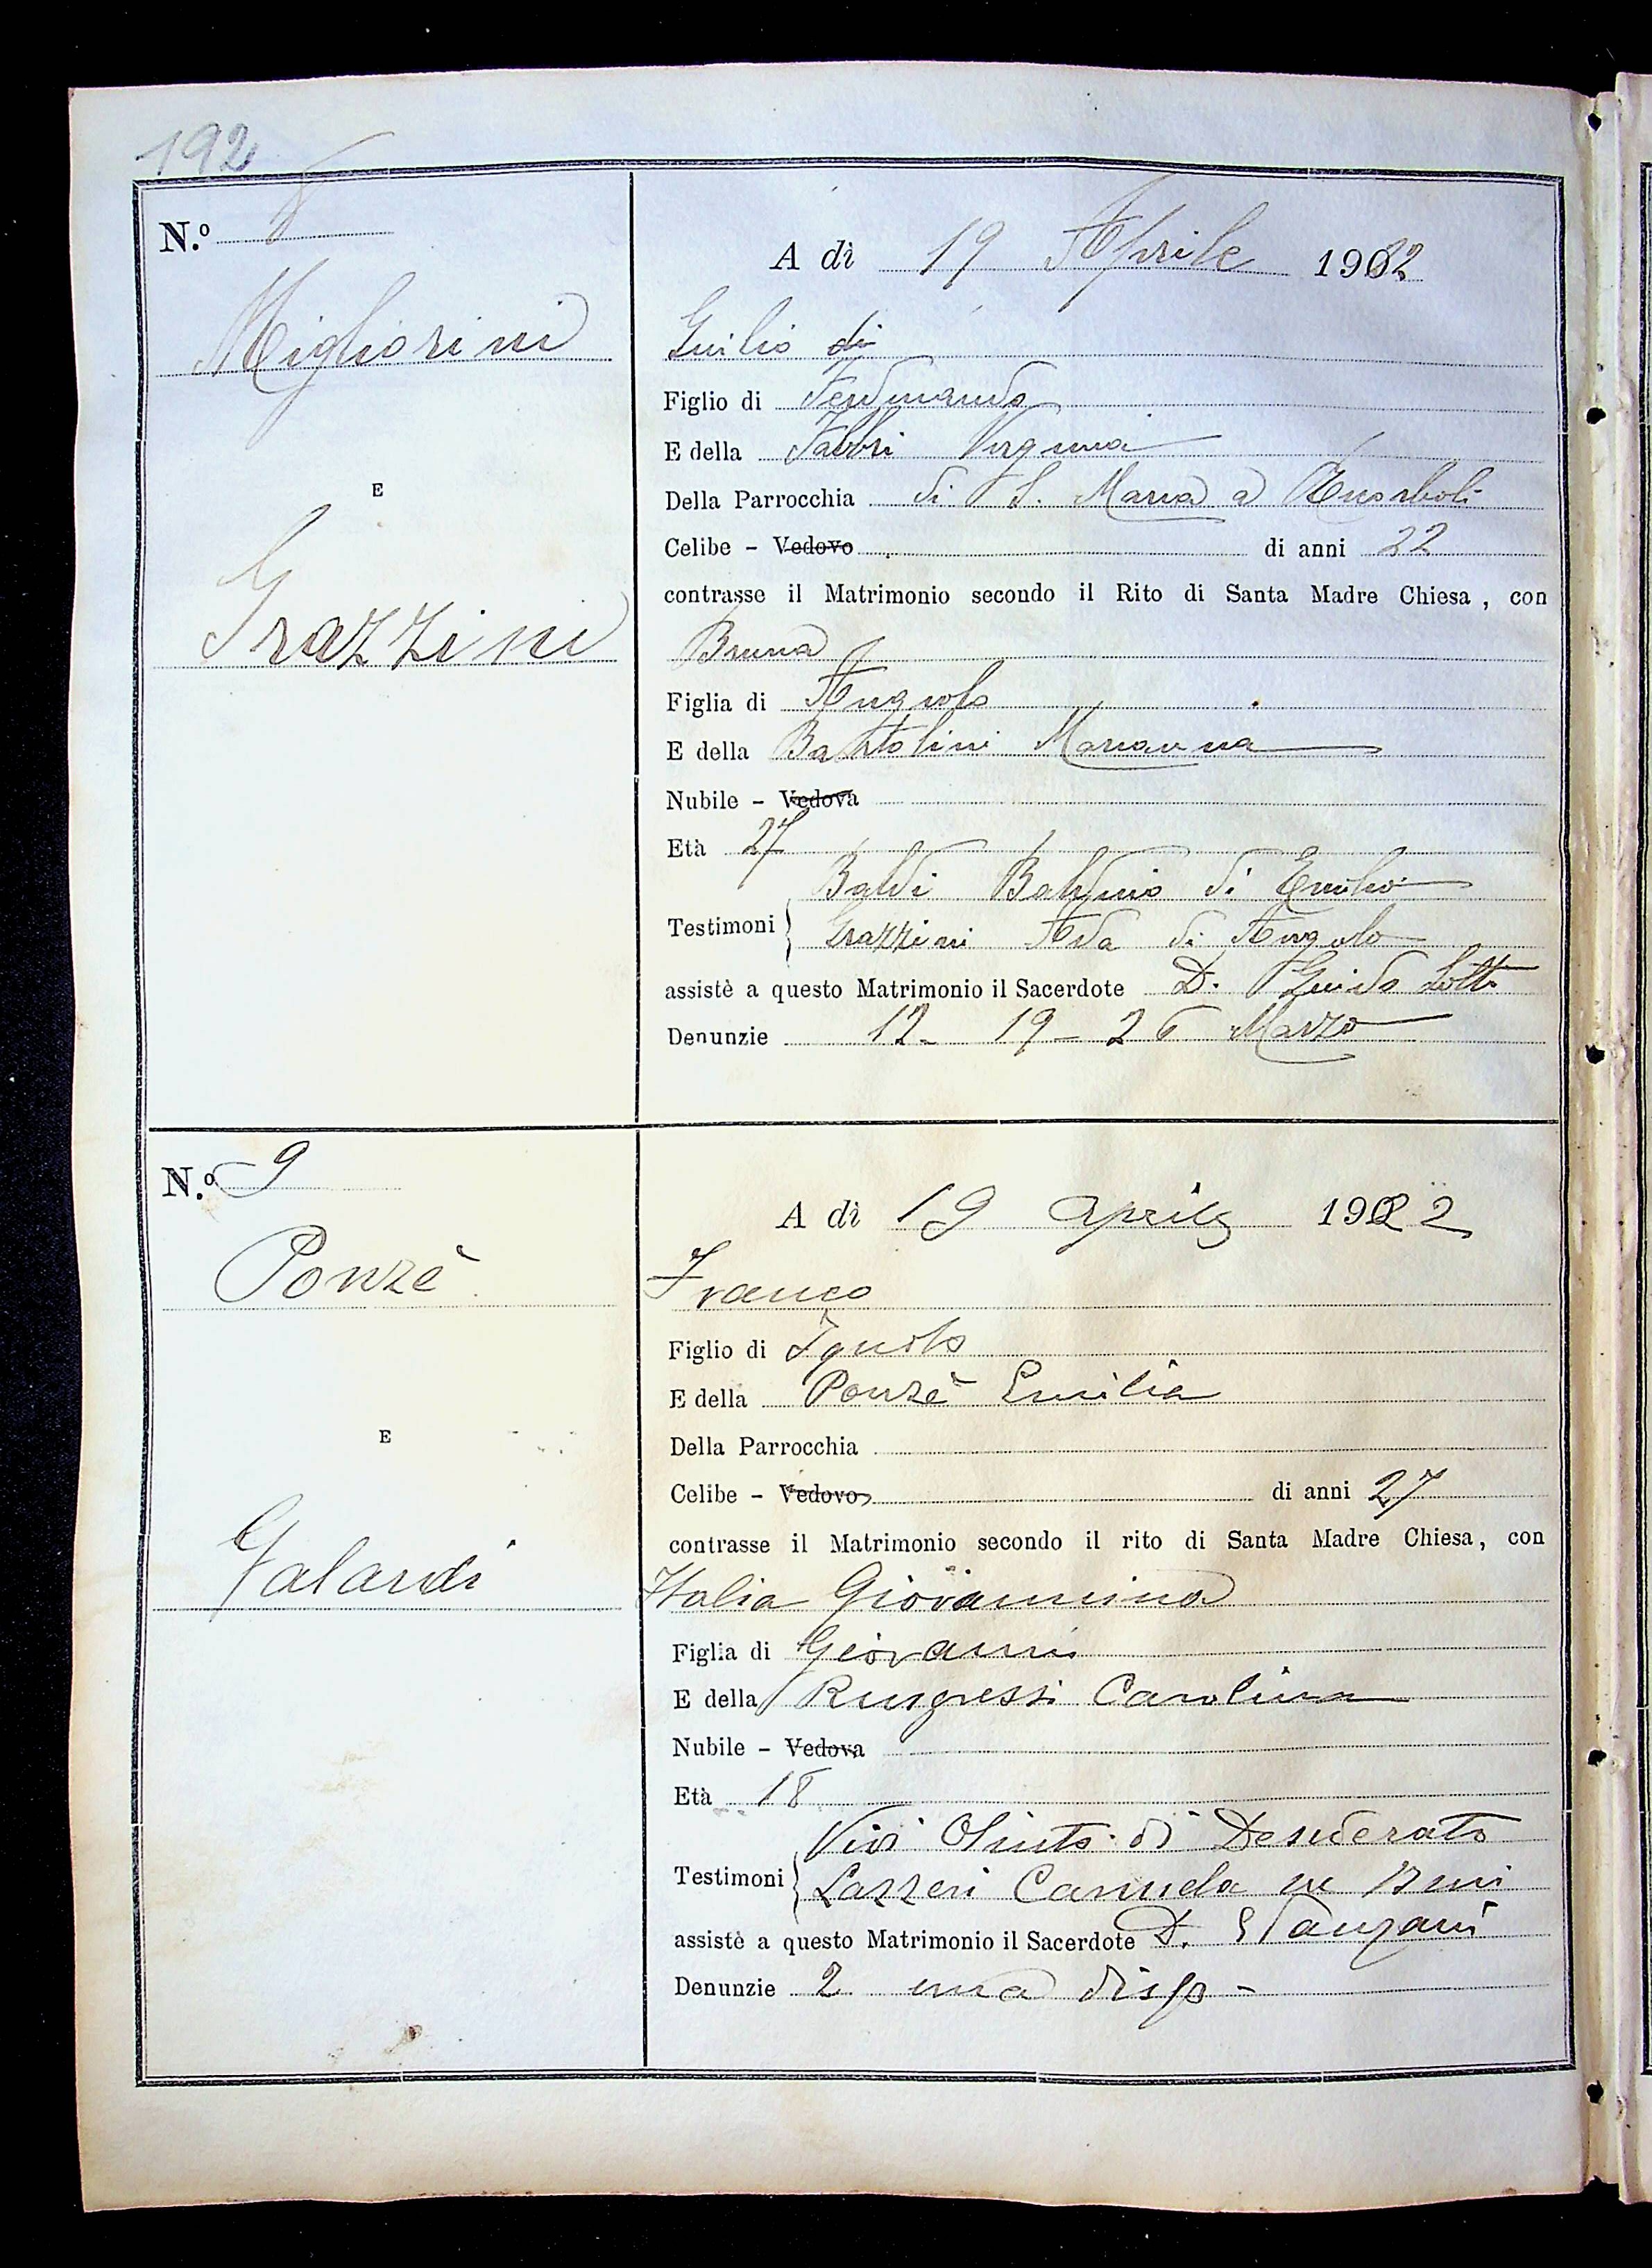 192
N.o 8
A dì 19 Aprile 1922
Migliorini
Guilio di
Figlio di Ferdinando
E della Fabbri Virginia
E
Della Parrocchia di S. Maria a Ricorboli
Celibe - Vedovo di anni 22
contrasse il Matrimonio secondo il Rito di Santa Madre Chiesa, con
Grazzini
Bruna
Figlia di Angiolo
E della Bartolini Marianna
Nubile - Vedova
Età 27
Baldi Balduino di Emilio
Testimoni Grazzini Ada di Angiolo
assistè a questo Matrimonio il Sacerdote D. Guido Lotti
Denunzie 12 - 19 - 26 Marzo
N.o 9
A dì 19 aprile 1922
Ponzè
Franco
Figlio di Ignoto
E della Ponzè Emilia
E
Della Parrocchia
Celibe - Vedovo di anni 27
contrasse il Matrimonio secondo il rito di Santa Madre Chiesa, con
Galardi
Italia Giovannina
Figlia di Giovanni
E della Carolina
Nubile - Vedova
Età 18
Olinto di Desiderato
Testimoni Lazzeri
assistè a questo Matrimonio il Sacerdote D.
Denunzie 2 una disp -